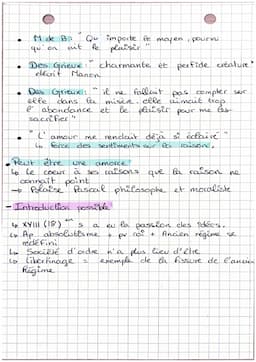 • M de B : " Qu'importe le moyen, pourvu
qu'on ait le plaisir "
• Des Grieux : " charmante et perfide créature "
décrit Manon
• Des Grieux : " il ne fallait pas compter sur
elle dans la misère, elle aimait trop
l'abondance et le plaisir pour me les
sacrifier "
• " L'amour me rendait déjà si éclairé "
↳ force des sentiments sur la raison.
• Peut être une amorce
↳ Le coeur a ses raisons que la raison ne
connaît point
↳ Blaise Pascal philosophe et moraliste
- Introduction possible
↳ XVIII (18) ème s a eu la passion des idées.
↳ Ap absolutisme + pv roi + Ancien régime se
redéfini
↳ Société d'ordre n'a plus lieu d'être
↳ libertinage = exemple de la fissure de l'ancien
Régime